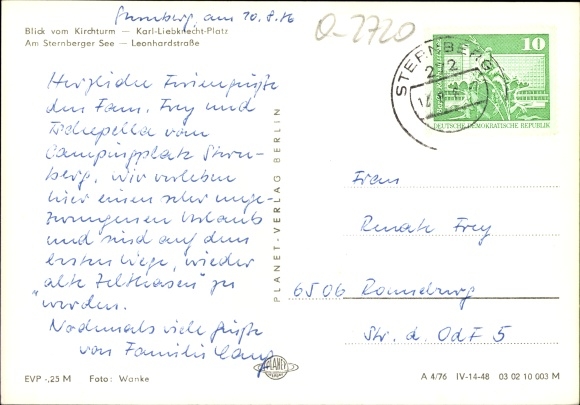 Sternberg, am 10.8.76
O-2720
Blick vom Kirchturm — Karl-Liebknecht-Platz
Am Sternberger See — Leonhardstraße
Herzliche Feriengrüße
den Fam. Frey und
vom
Campingplatz Stern-
berg. Wir verleben
hier einen sehr unge-
zwungenen Urlaub
und sind auf dem
besten Wege, wieder
"alte Zelthasen" zu
werden.
Nochmals viele Grüße
von Familie Lang
PLANET-VERLAG BERLIN
STERNBERG
272
10
DEUTSCHE DEMOKRATISCHE REPUBLIK
Frau
Renate Frey
6506 Ronneburg
Str. d. OdF 5
PLANET
EVP -,25 M Foto: Wanke
A 4/76 IV-14-48 03 02 10 003 M